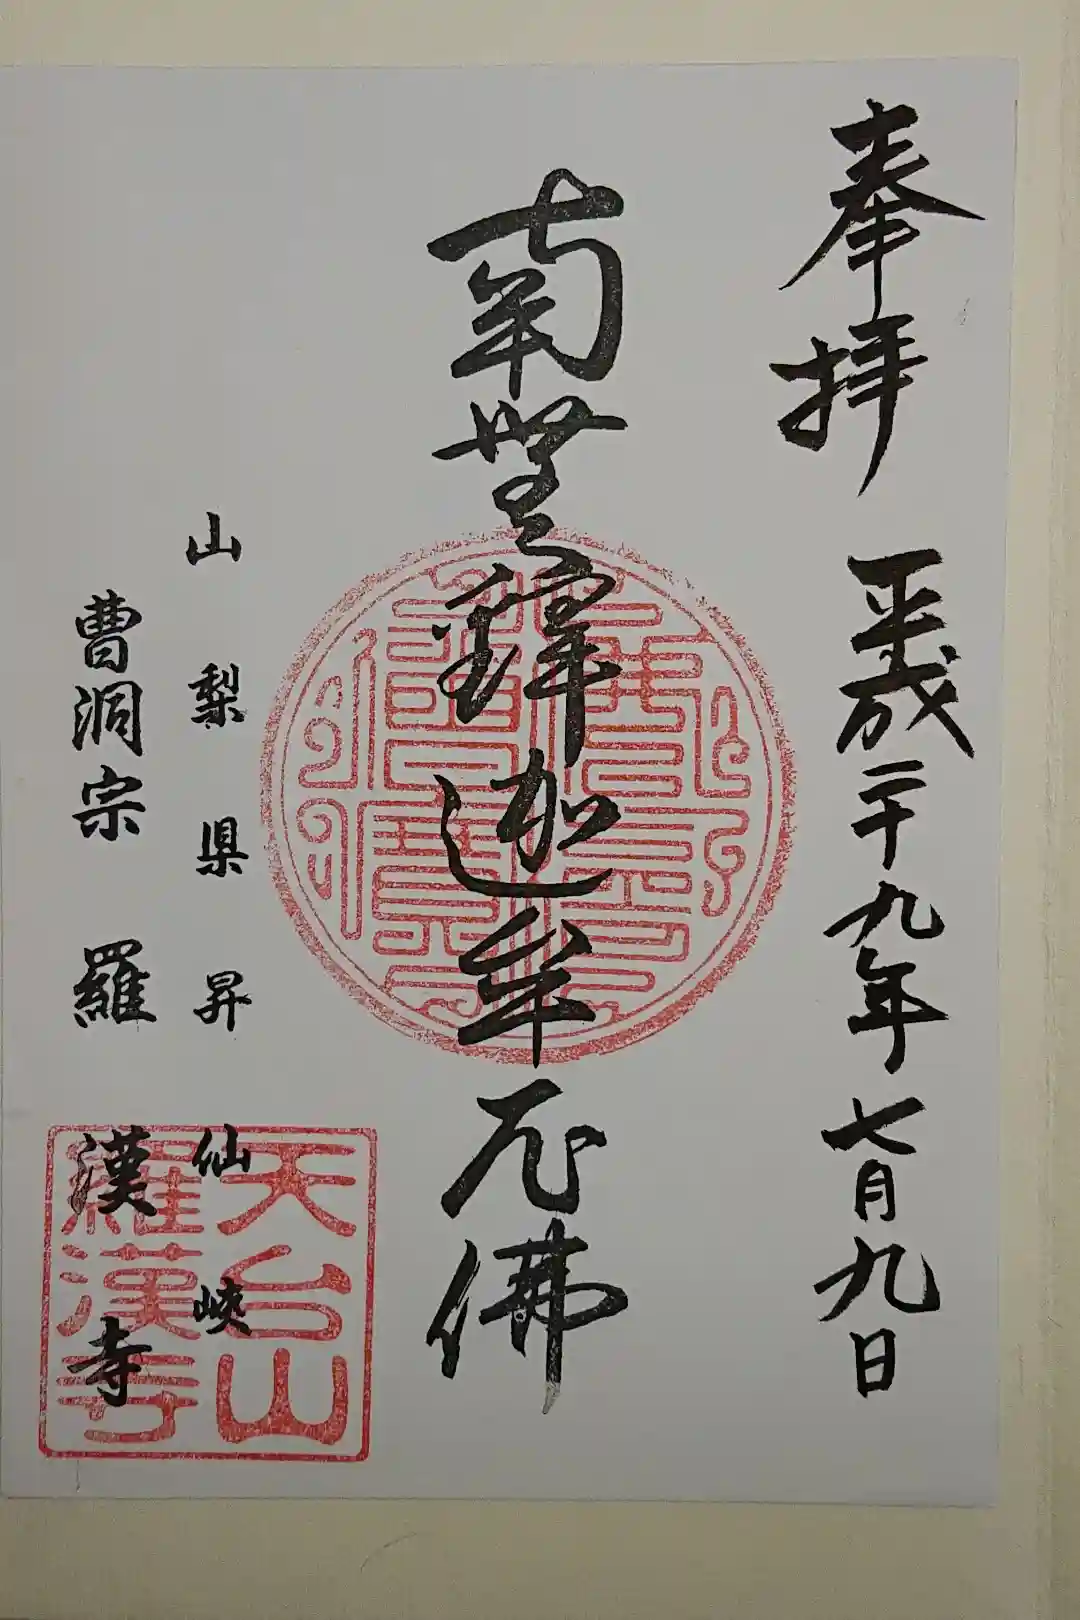 奉拝 平成二十九年七月九日
南無釋迦牟尼佛
山梨県昇仙峡
曹洞宗 羅漢寺
天台山
羅漢寺